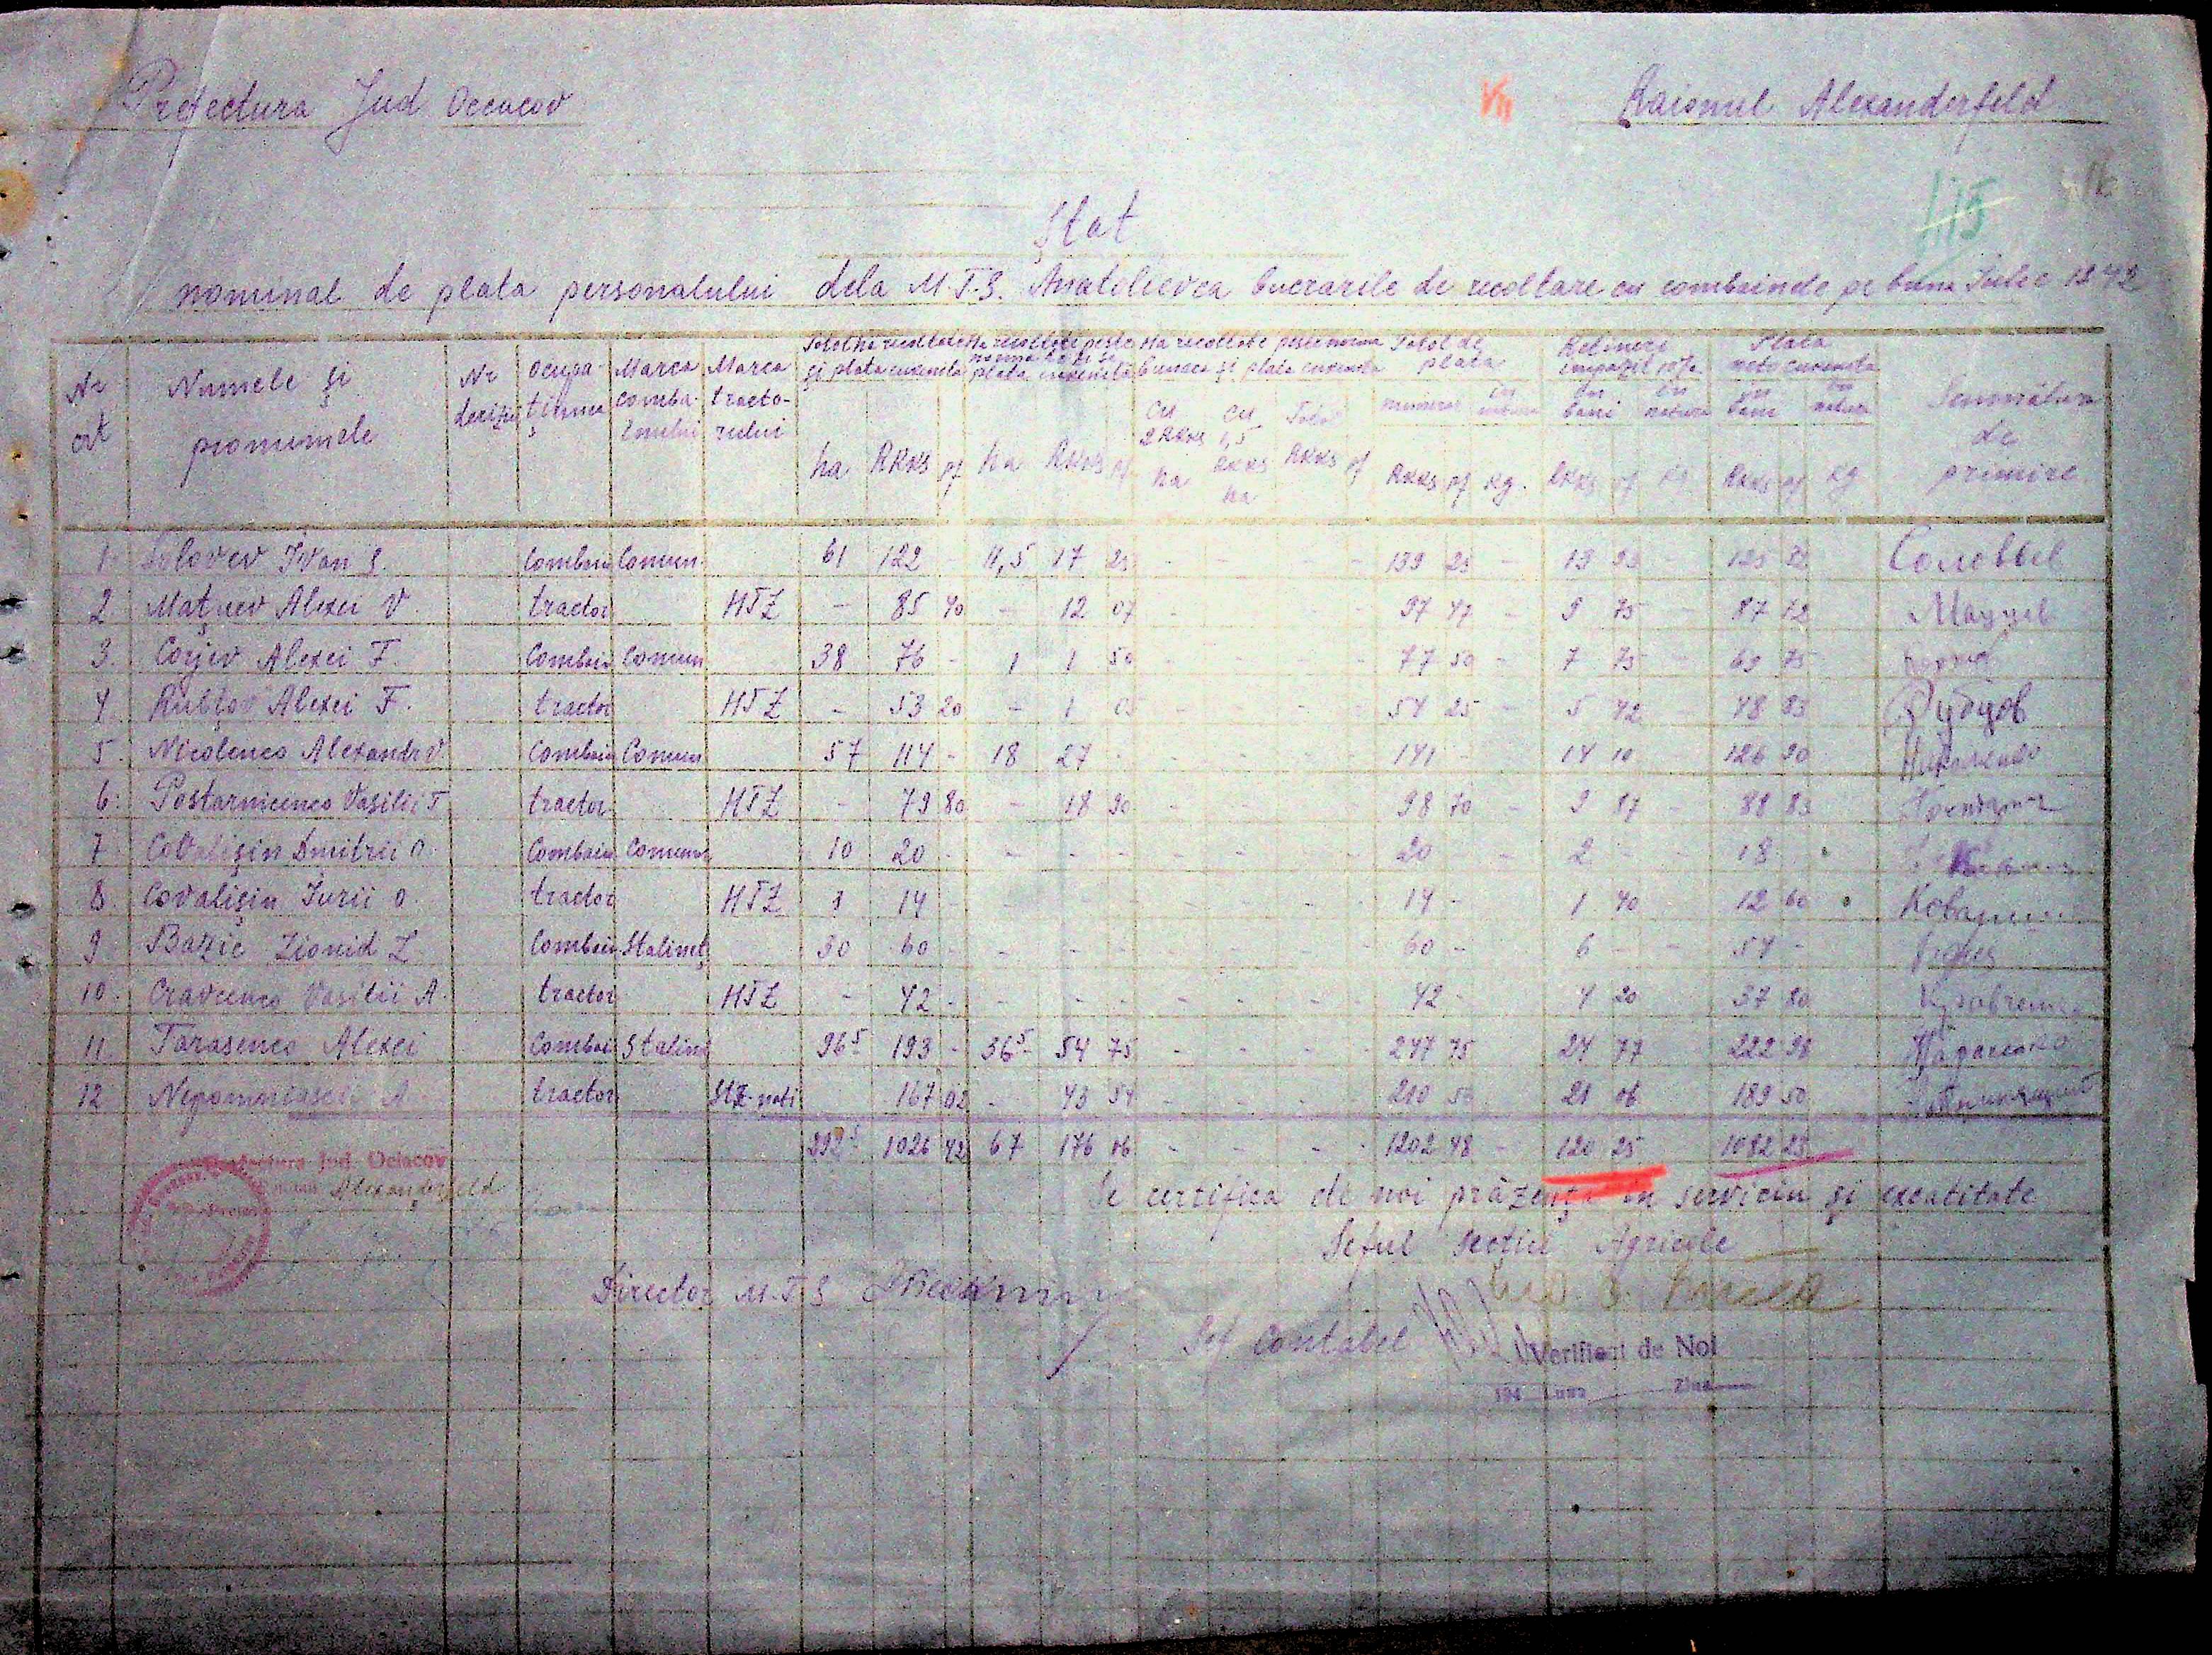 Prefectura Jud Occacov
VII
Raionul Alexanderfeld
115
Ştat
nominal de plata personalului dela M.T.S. Anatolievca lucrarile de recoltare cu combainele pe luna Iulie 1942
Nr crt Numele şi pronumele Nr deciziei ocupaţiunea Marca combainului Marca tractorului Total ha recoltate şi plata cuvenita Ha recoltate peste norma şi plata cuvenita Ha recoltate peste norma şi plata cuvenita Total de plata Retineri impozit 10% Plata neto cuvenita Semnătura de primire
cu 2 RKKS ha cu 1,5 RKKS ha Total RKKS pf numerar in natura in bani in natura in bani in natura
ha RKKS pf ha RKKS pf RKKS pf kg. RKKS pf kg RKKS pf kg
1. Solovev Ivan S. Combain Comun. 61 122 - 11,5 17 25 - - - - 139 25 - 13 93 - 125 32 Соловьев
2. Maţnev Alexei V. tractor HTZ - 85 40 - 12 07 - - - - 97 47 - 9 75 - 87 72 Мацнев
3. Corjev Alexei F. Combain Comun 38 76 - 1 1 50 - - - - 77 50 - 7 75 - 69 75
4. Rubţov Alexei F. tractor HTZ - 53 20 - 1 05 - - - - 54 25 - 5 42 - 48 83 Рубцов
5. Nicolenco Alexandr V Combain Comun 57 114 - 18 27 - - - - 141 - 14 10 126 90 Николенко
6. Postarnicenco Vasilii T tractor HTZ - 79 80 - 18 90 - - - 98 70 - 9 87 - 88 83
7. Covalişin Dmitrii O. Combain Comun 10 20 - - - - - - - 20 - - 2 - - 18
8. Covalişin Iurii O. tractor HTZ - 14 - - - - - - - 14 - 1 40 12 60 Ковалиш
9. Bazic Lionid L Combain Stalineţ 30 60 - - - - - - - 60 - 6 - - 54 -
10. Cravcenco Vasilii A. tractor HTZ - 42 - - - - - - - 42 - 4 20 37 80 Кравченко
11. Tarasenco Alexei Combai Stalin 96⁵ 193 - 36⁵ 54 75 - - - - 247 75 24 77 222 98 Тарасенко
12 Nepomniascii A tractor STZ-nati 167 02 - 43 54 - - - - 210 56 21 06 189 50
292⁵ 1026 42 67 176 06 - - - - 1202 48 - 120 25 1082 23
Prefectura Jud. Ociacov
Alexanderfeld
Se certifica de noi prăzenţa in serviciu şi exactitate
Seful Secţiei Agricole
Director M.T.S
Sef Contabel
Verificat de Noi
194 Luna Ziua